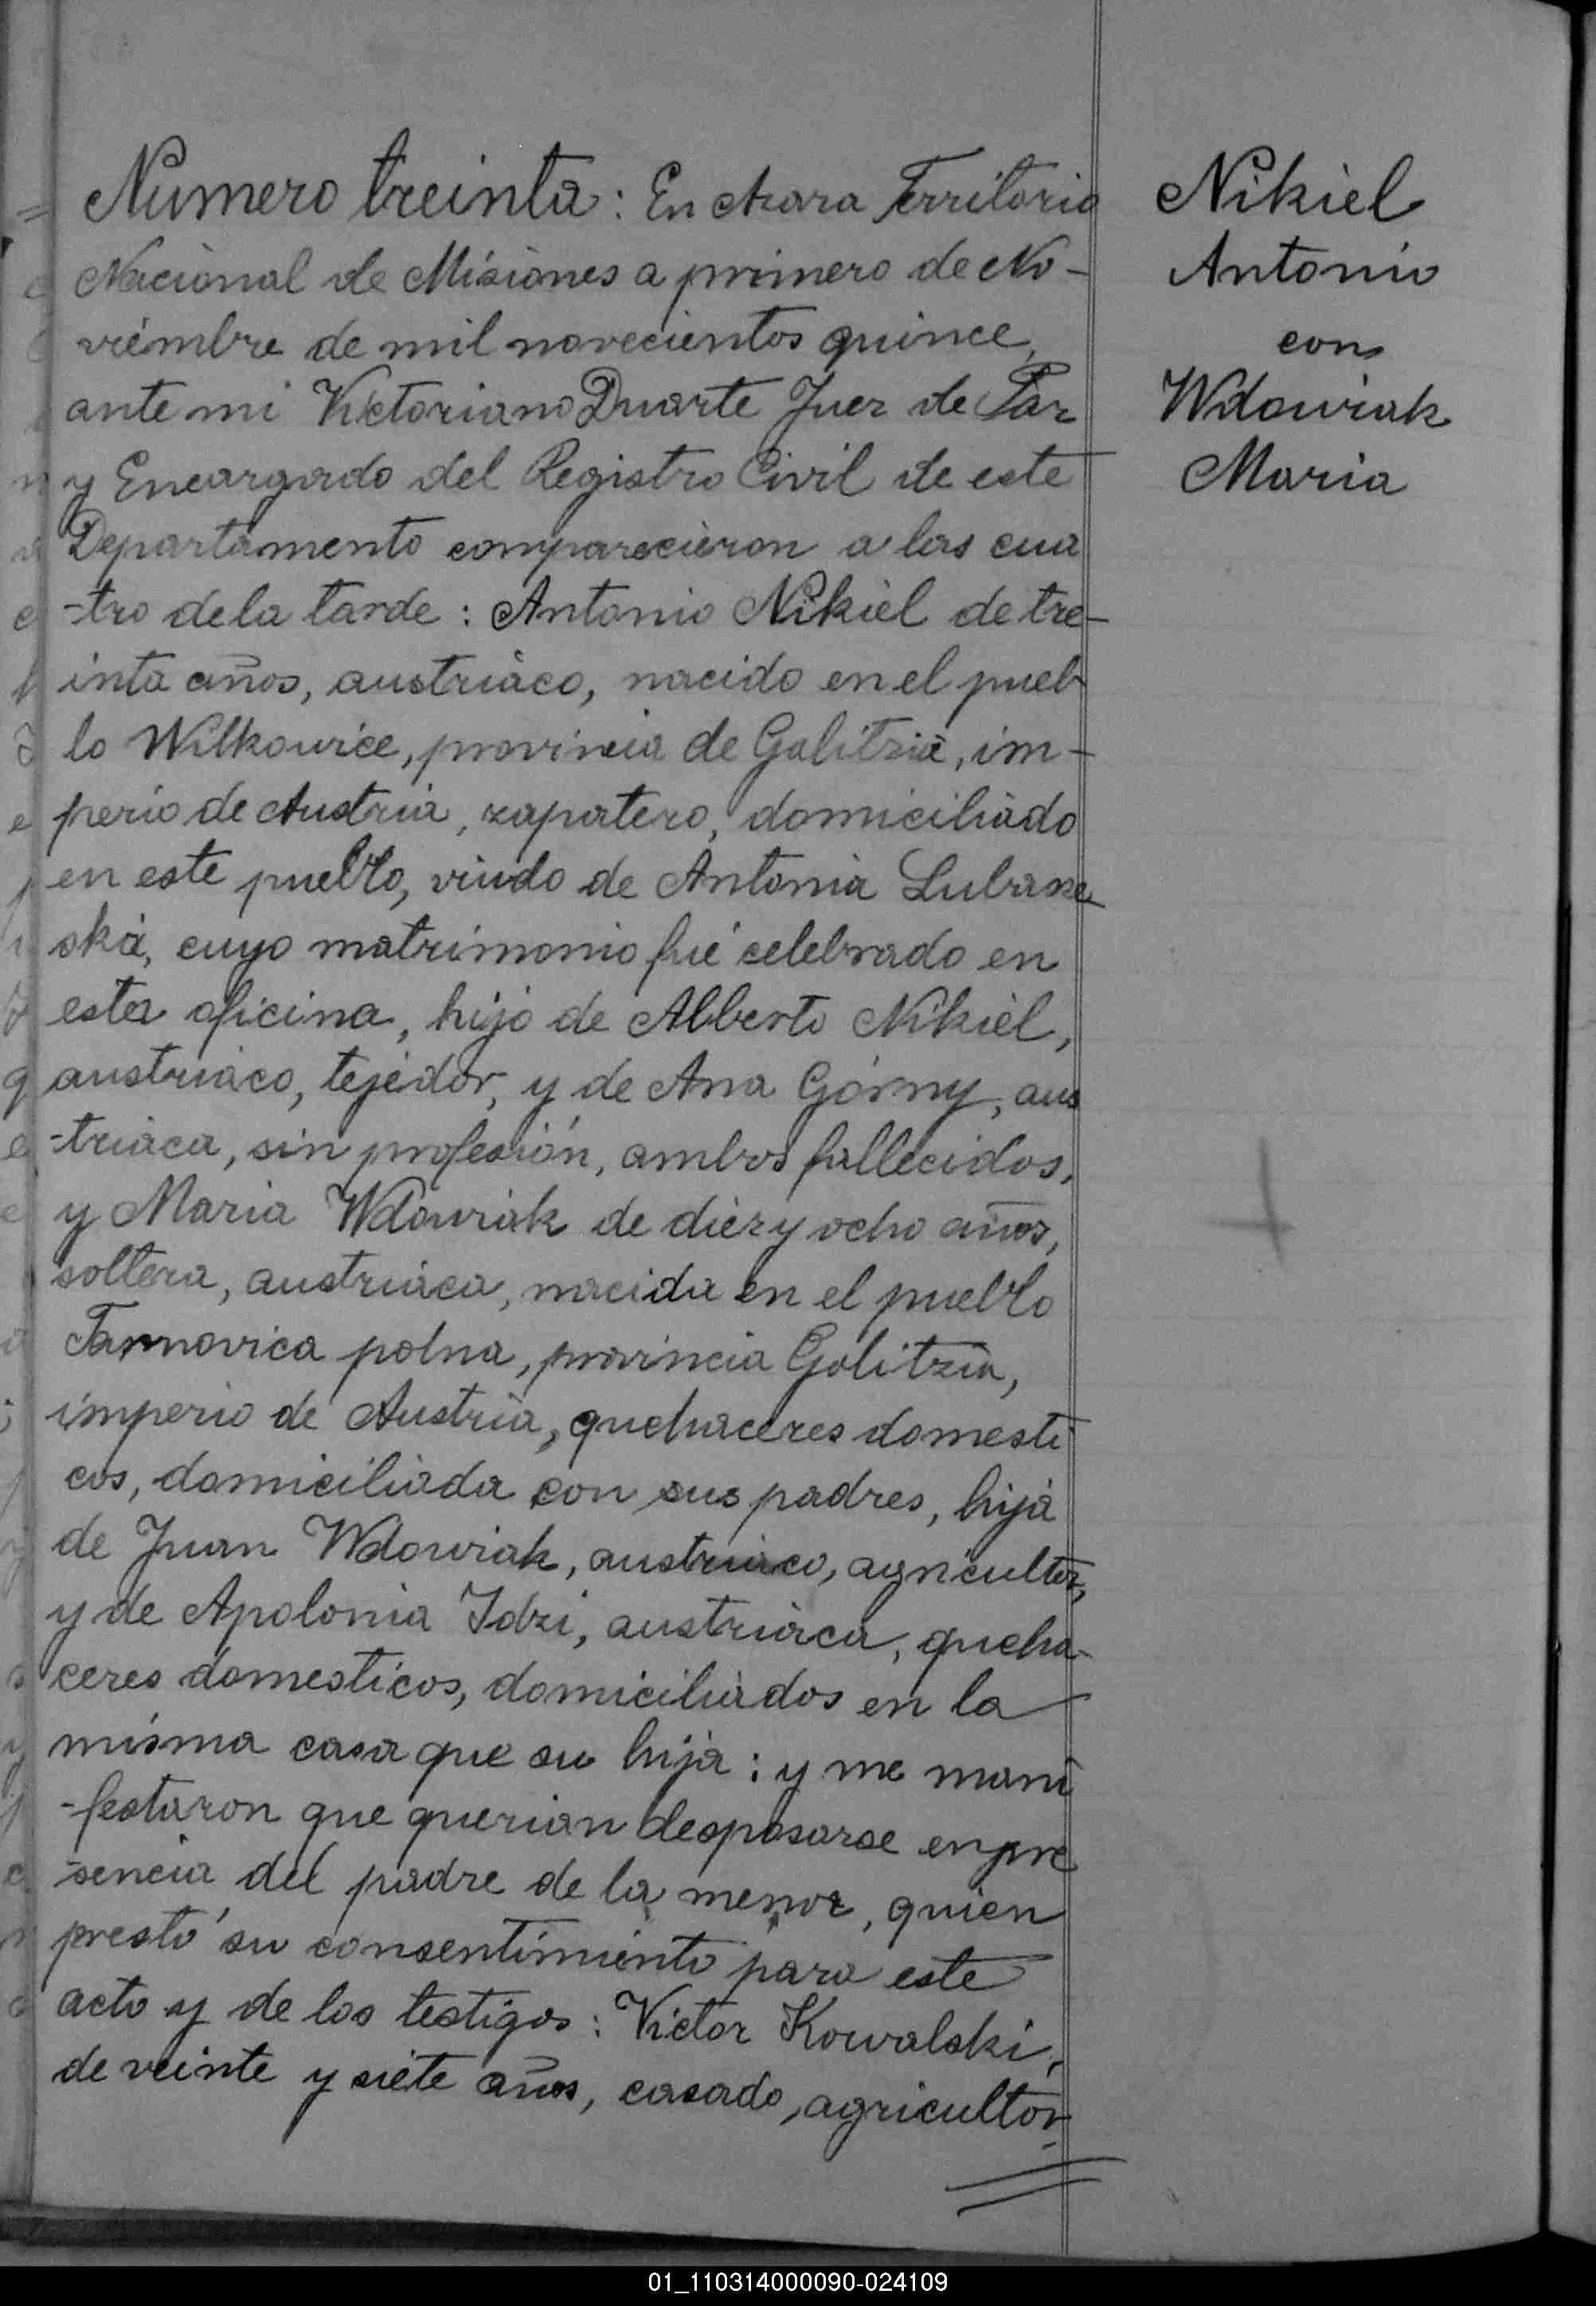 Numero treinta: En Azara Territorio
Nacional de Misiones a primero de No-
viembre de mil novecientos quince,
ante mi Victoriano Duarte Juez de Paz
y Encargado del Registro Civil de este
Departamento comparecieron a las cua
-tro de la tarde: Antonio Nikiel de tre-
inta años, austriaco, nacido en el pueb
lo Wilkowice, provincia de Galitzia, im-
perio de Austria, zapatero, domiciliado
en este pueblo, viudo de Antonia
ska, cuyo matrimonio fué celebrado en
esta oficina, hijo de Alberto Nikiel,
austriaco, tejedor, y de Ana Górny, aus
-triaca, sin profesión, ambos fallecidos,
y Maria Wdowiak de diez y ocho años,
soltera, austriaca, nacida en el pueblo
Tarnovica polna, provincia Galitzia,
imperio de Austria, quehaceres domesti
cos, domiciliada con sus padres, hija
de Juan Wdowiak, austriaco, agricultor,
y de Apolonia Idzi, austriaca, queha-
ceres domesticos, domiciliados en la
misma casa que su hija: y me mani
-festaron que querian desposarse en pre
-sencia del padre de la menor, quien
prestó su consentimiento para este
acto y de los testigos: Victor Kowalski,
de veinte y siete años, casado, agricultor
Nikiel
Antonio
con
Wdowiak
Maria
01_110314000090-024109